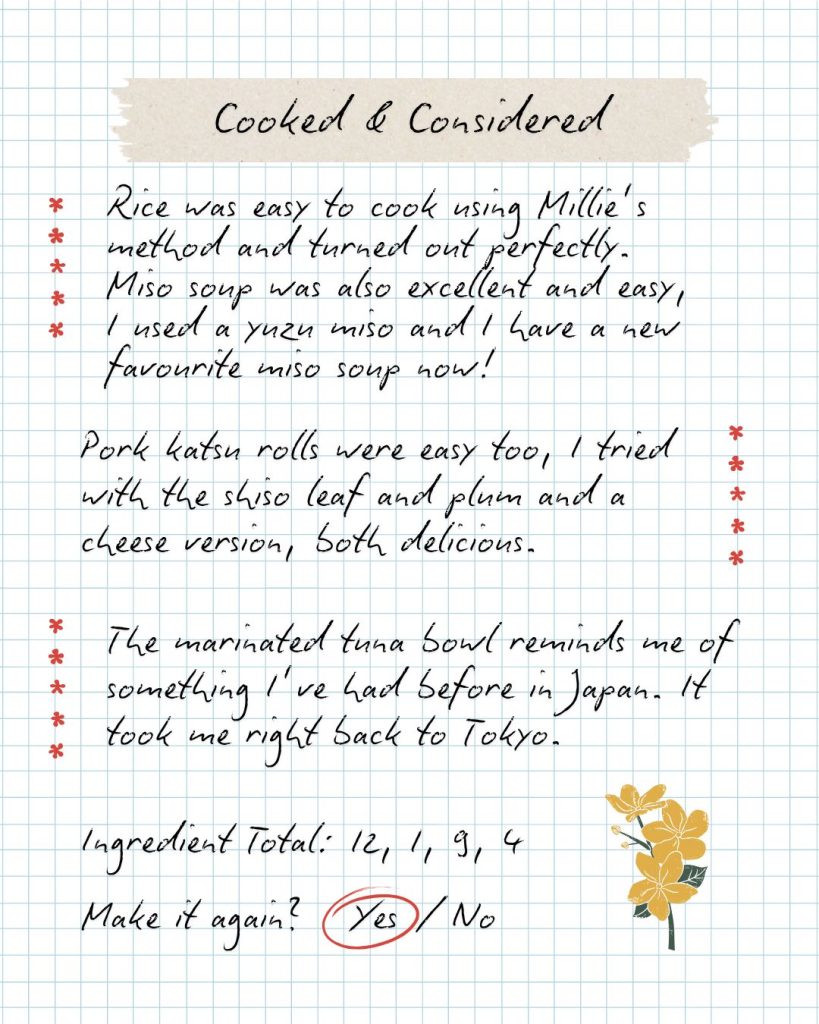 Cooked & Considered
Rice was easy to cook using Millie's
method and turned out perfectly.
Miso soup was also excellent and easy,
I used a yuzu miso and I have a new
favourite miso soup now!
Pork katsu rolls were easy too, I tried
with the shiso leaf and plum and a
cheese version, both delicious.
The marinated tuna bowl reminds me of
something I've had before in Japan. It
took me right back to Tokyo.
Ingredient Total: 12, 1, 9, 4
Make it again? Yes / No